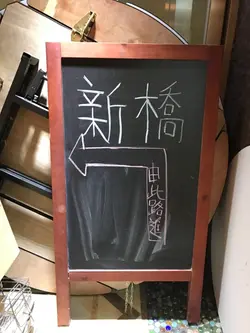 新橋
由此路進